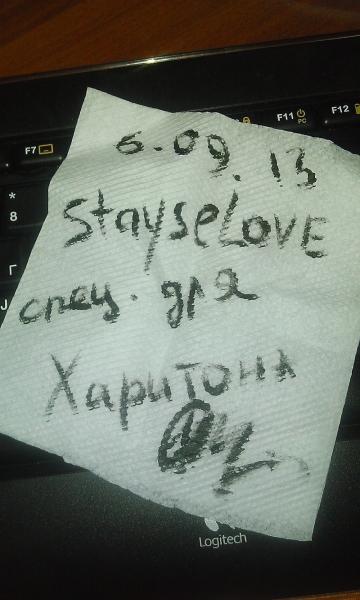 F7 F11 PC F12
* 8
6.09.13
StayseLOVE
Г J
спец. для
Харитона
Logitech